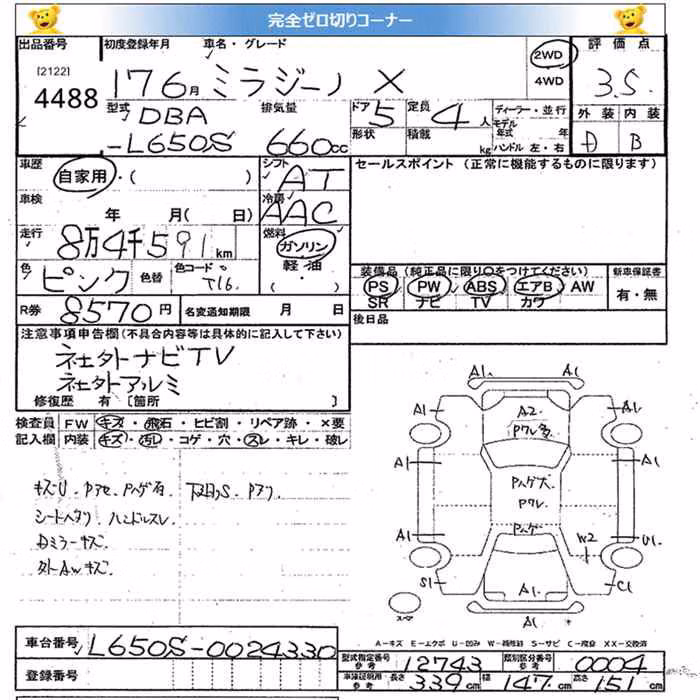 完全ゼロ切りコーナー
出品番号
[2122]
4488
初度登録年月 車名・グレード
17 6月 ミラジーノ X
2WD
4WD
評価点
3.5
外装 内装
D B
型式
DBA
-L650S
排気量
660cc
ドア
5
定員
4人
形状
積載
kg
ディーラー・並行
モデル年式 年
ハンドル 左・右
車歴
自家用・( )
シフト
AT
車検
年 月( 日)
冷房
AAC
走行
8万4千591km
燃料
ガソリン
軽油
・( )
色
ピンク
色替
色コード
T16
R券
8570円
名変通知期限 月 日
セールスポイント (正常に機能するものに限ります)
装備品(純正品に限り○をつけてください)
PS PW ABS エアB AW
SR ナビ TV カワ
新車保証書
有・無
後日品
注意事項申告欄(不具合内容等は具体的に記入して下さい)
社外ナビTV
社外アルミ
修復歴 有〔箇所 〕
検査員記入欄
FW キズ・飛石・ヒビ割・リペア跡・×要
内装 キズ・汚レ・コゲ・穴・スレ・キレ・破レ
シートヘタリ ハンドルスレ
Dミラーキズ
外AWキズ
A1 A1
A1 A2 A1
Pワレ多
A1 A1
Pハゲ大
Pワレ
Pハゲ
A1 W2 U1
S1 A1 C1
A1
スペア
A-キズ E-エクボ U-凹み W-補修跡 S-サビ C-腐食 XX-交換済
車台番号
L650S-0024330
登録番号
型式指定番号
参考
12743
類別区分番号
参考
0004
車庫証明用
参考
長さ 339cm 幅 147cm 高さ 151cm